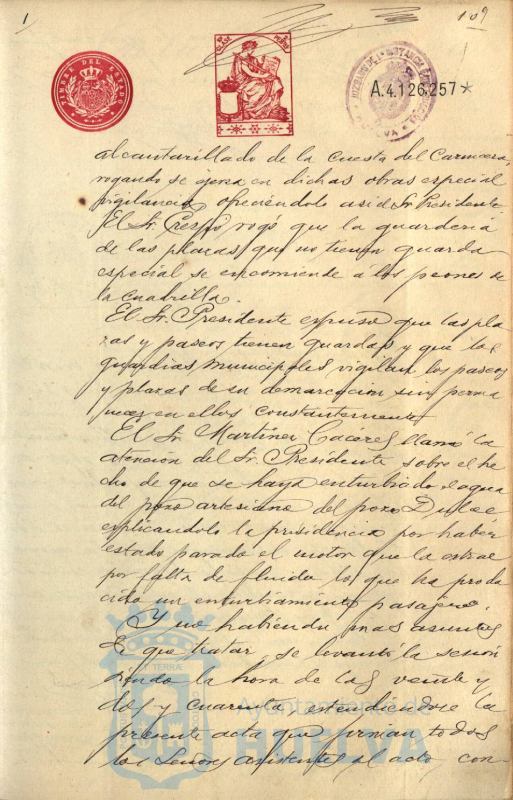 1
109
TIMBRE DEL ESTADO
A.4.126.257*
alcantarillado de la cuesta del Carnicero,
rogando se ejerza en dichas obras especial
vigilancia, ofreciéndolo así el Sr. Presidente
El Sr. Crespo rogó que la guardería
de las plazas, que no tienen guarda
especial se encomiende a los peones de
la cuadrilla.
El Sr. Presidente expuso que las pla
zas y paseos tienen guardas y que los
guardias municipales vigilan los paseos
y plazas de su demarcación sin perma
necer en ellos constantemente
El Sr. Martínez Cáceres llamó la
atención del Sr. Presidente sobre el he
cho de que se haya enturbiado el agua
del pozo artesiano del pozo Dulce
explicándolo la presidencia por haber
estado parado el motor que la extrae
por falta de fluido lo que ha produ
cido un enturbiamiento pasajero.
Y no habiendo mas asuntos
de que tratar, se levantó la sesión
siendo la hora de las veinte y
dos y cuarenta, extendiéndose la
presente acta que firman todos
los Señores asistentes al acto, con-
Ayuntamiento de
HUELVA